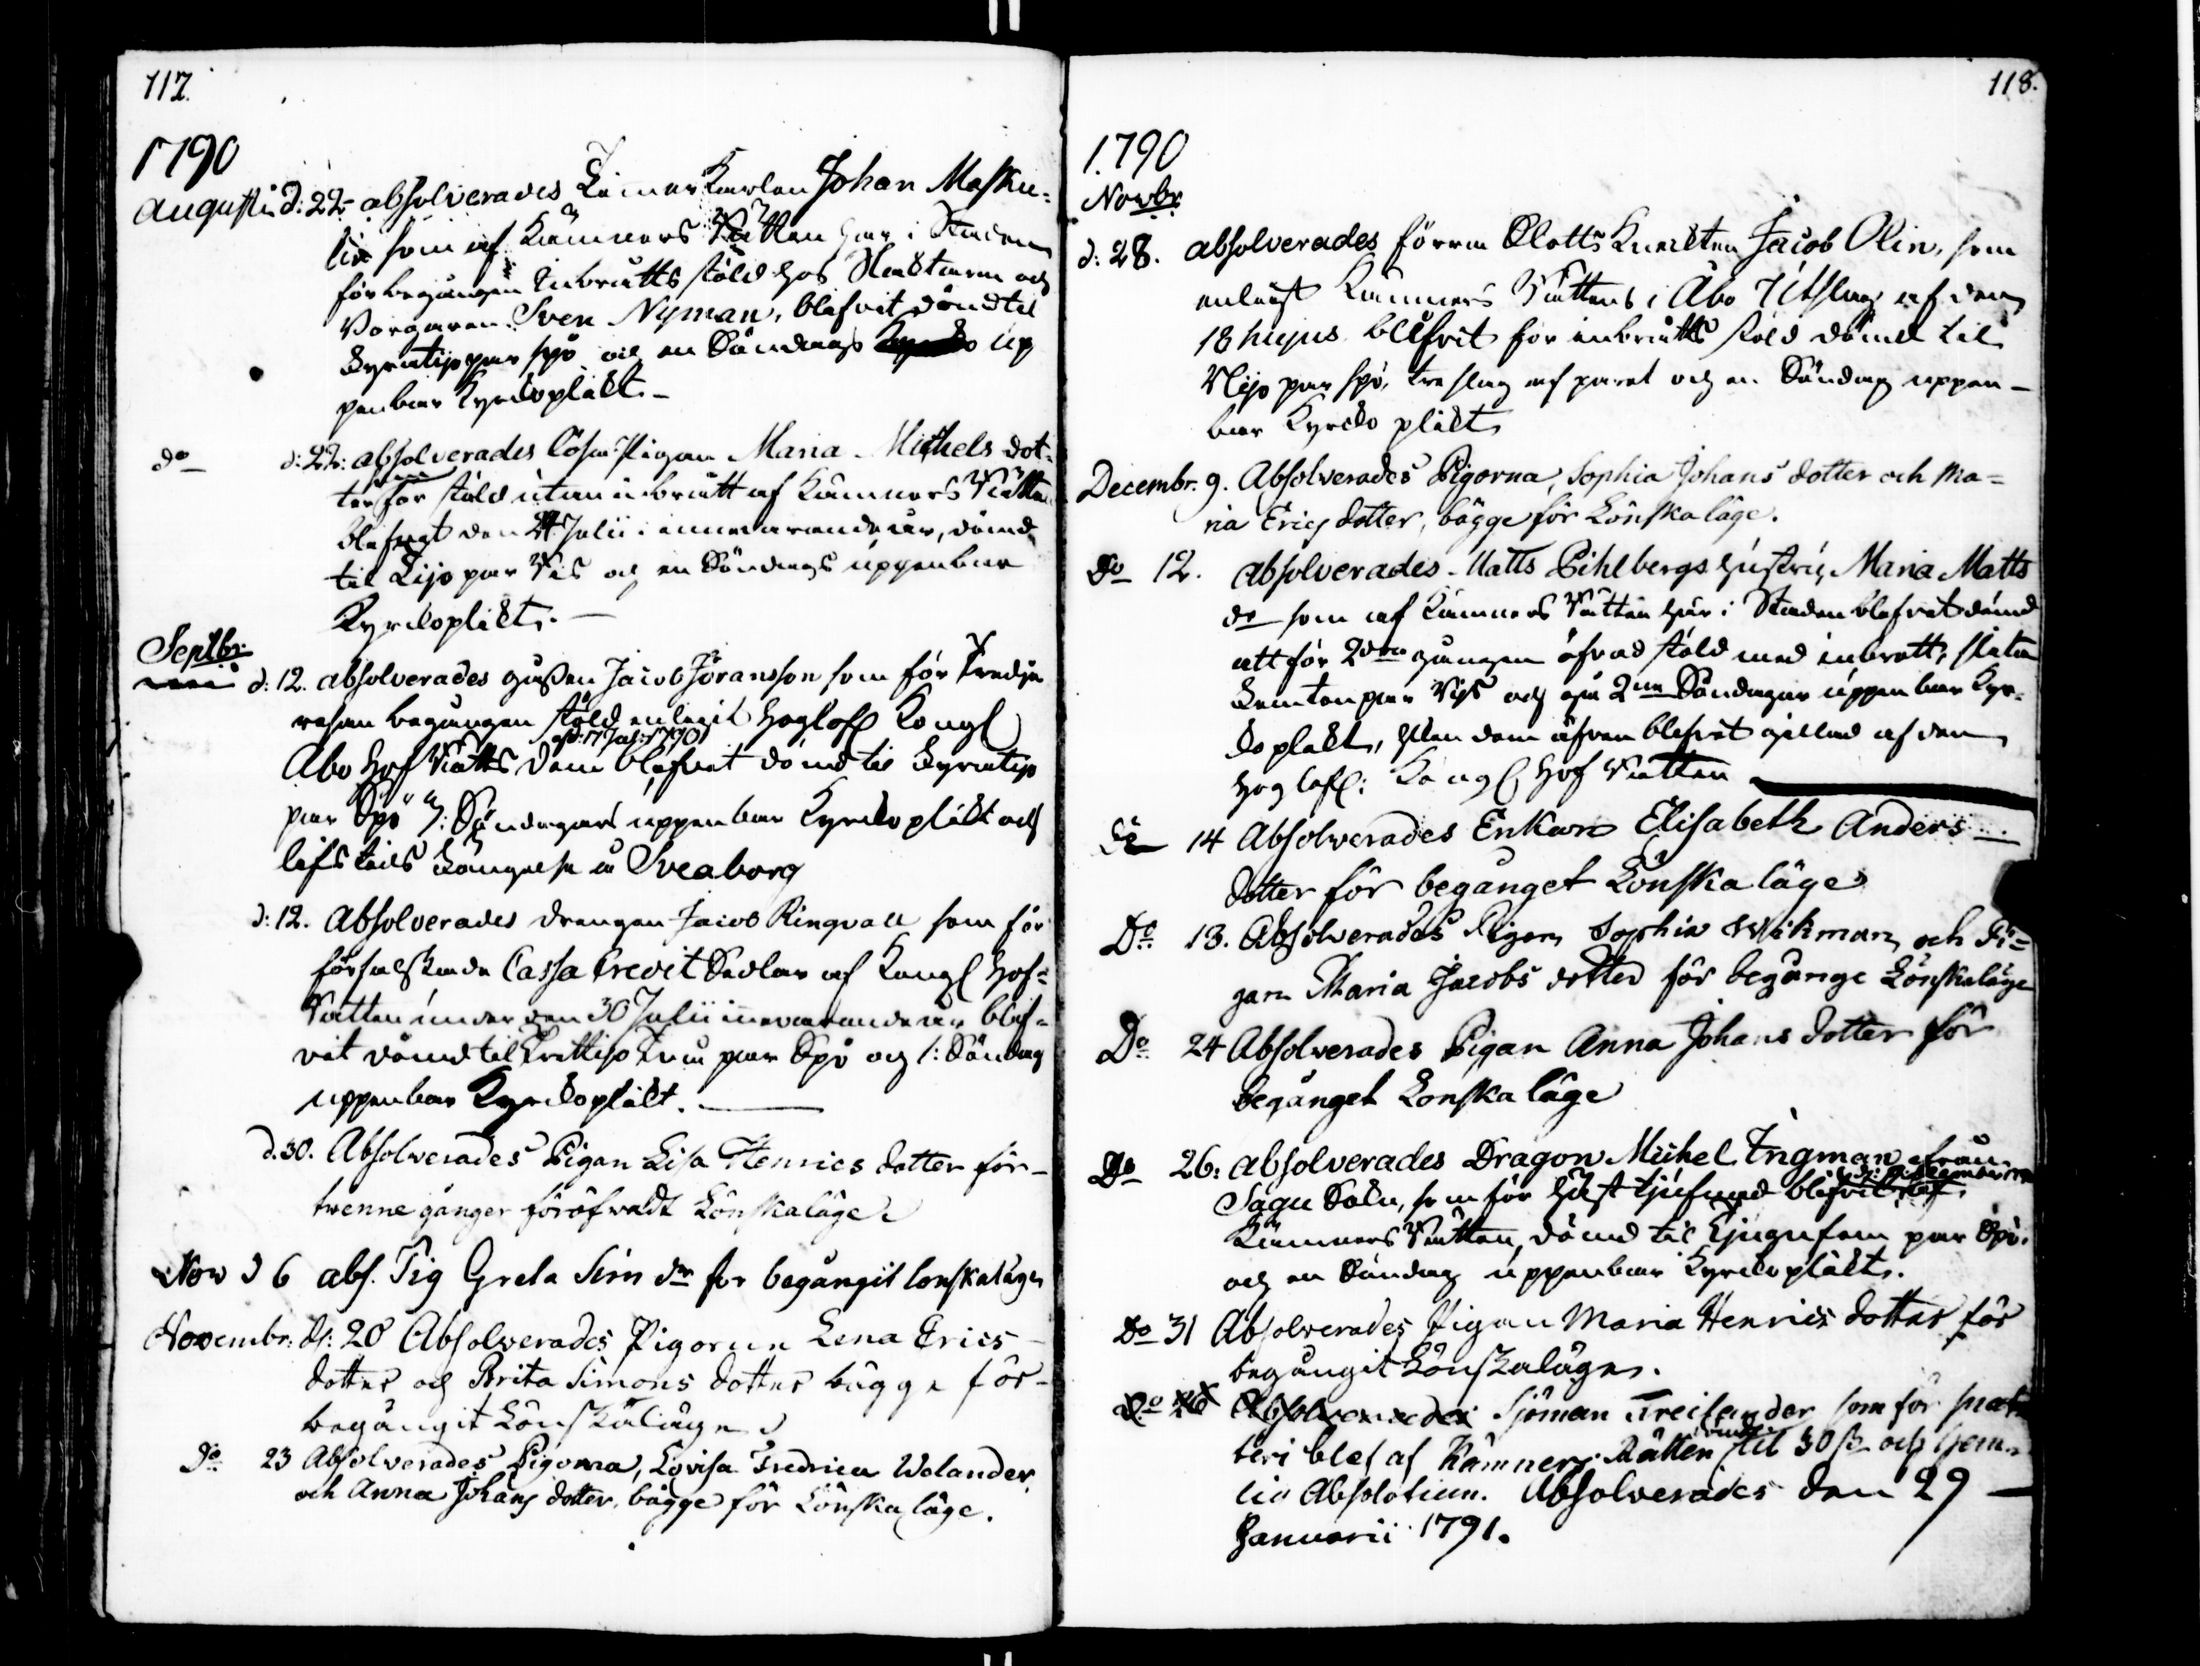 117.
1790
Augusti d: 22 absolverades Timerkarlen Johan Masku-
lin som af Kämners Rätten här i Staden
för begången Inbrotts stöld hos Slaktaren och
Borgaren Sven Nyman, blifvit dömd til
Fyratijo par spö och en Söndags up
penbar Kyrckoplikt.
do d: 22: absolverades Lösa Pigan Maria Michels dot-
ter som för stöld utan inbrott af Kämners Rätten
blifvit den 24 Julii innevarande år, dömd
til Tijo par Ris och en Söndags uppenbar
Kyrckoplikt.
Septbr:
d: 12. absolverades gossen Jacob Göransson som för tredje
resan begången stöld enligit Höglofl Kongl
af d: 17 Jul: 1790
Åbo Hof Rätts dom blifvit dömd til Fyratijo
par Spö 3: Söndagars uppenbar Kyrckoplikt och
lifstids Fängelse å Sveaborg
d: 12. Absolverades drengen Jacob Ringvall som för
förfalskade Cassa Credit Sedlar af Kongl Hof-
Rätten under den 30 Julii innevarande år blif-
vit dömd til Trettijo Fem par Spö och 1: Söndag
uppenbar Kyrckoplikt.
d. 30. Absolverades Pigan Lisa Henrics dotter för
twenne gånger föröfwadt Lönskaläge
Nov d 6 abs. Pig Greta Sim dr for begångit lonskaläge
Novembr: d: 20 Absolverades Pigorna Lena Erics
dotter och Brita Simons dotter bägge för
begångit Lönskaläge
do 23 Absolverades Pigorna, Lovisa Fredrica Welander,
och Anna Johans dotter, bägge för Lönska läge.
118.
1790
Novbr
d: 28. absolverades förra Slotts Knekten Jacob Olin, som
enligt Kämners Rättens i Åbo Utslag af den
18 hujus blifvit för inbrotts stöld dömd til
Nijo par spö, tre slag af paret och en Söndag uppen-
bar Kyrcko plikt
Decembr. 9. Absolverades Pigorna, Sophia Johans dotter och Ma-
ria Erics dotter, bägge för Lönskaläge.
Do 12. absolverades Matts Pihlbergs hustru, Maria Matts
dr som af Kämners Rätten här i Staden blifvit dömd
att för 2dra gången öfvad stöld med inbrott, slita
Femton par Ris och stå 2ne Söndagar uppenbar Kyr-
ckoplikt, hvilken dom äfven blifvit gillad af den
Höglofl: Kongl Hof Rätten
Do 14 Absolverades Enkan Elisabeth Anders
dotter för begånget Lönska läge
Do 13. Absolverades Pigan Sophia Wikman och Pi-
gan Maria Jacobs dotter för begånge Lönskaläge
Do 24 Absolverades Pigan Anna Johans dotter för
begånget Lonska läge
Do 26: absolverades Dragon Michel Ingman ifrån
Sagu Sokn, som för häst tjufnad blifvit af
Kämners Rätten, dömd til Tjugufem par Spö.
och en Söndag uppenbar Kyrckoplikt.
Do 31 Absolverades Pigan Maria Henrics dotter för
begångit Lönskaläge.
Do Absolverades Sjöman Treilander som för snat-
teri blef af Kämners Rätten dömd til 30 och hem-
lig Absolution. Absolverades den 29
Januarii 1791.